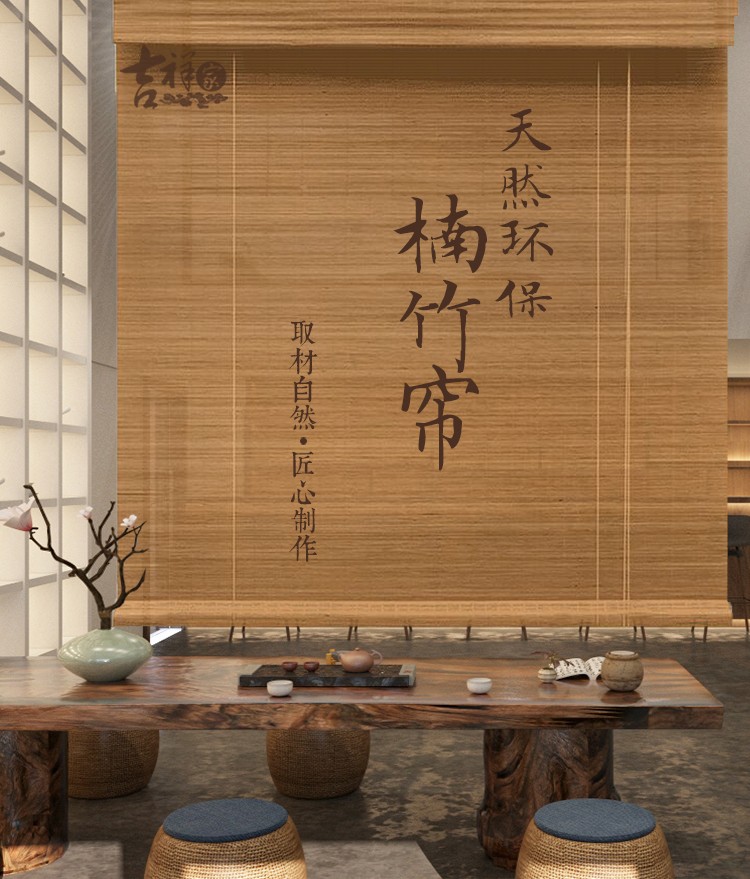 吉祥家
天然环保
楠竹帘
取材自然·匠心制作